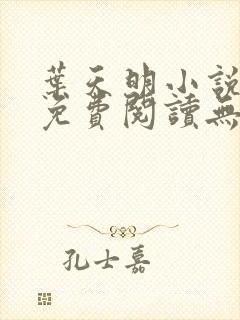 葉天明小說
免費閱讀無
孔士嘉